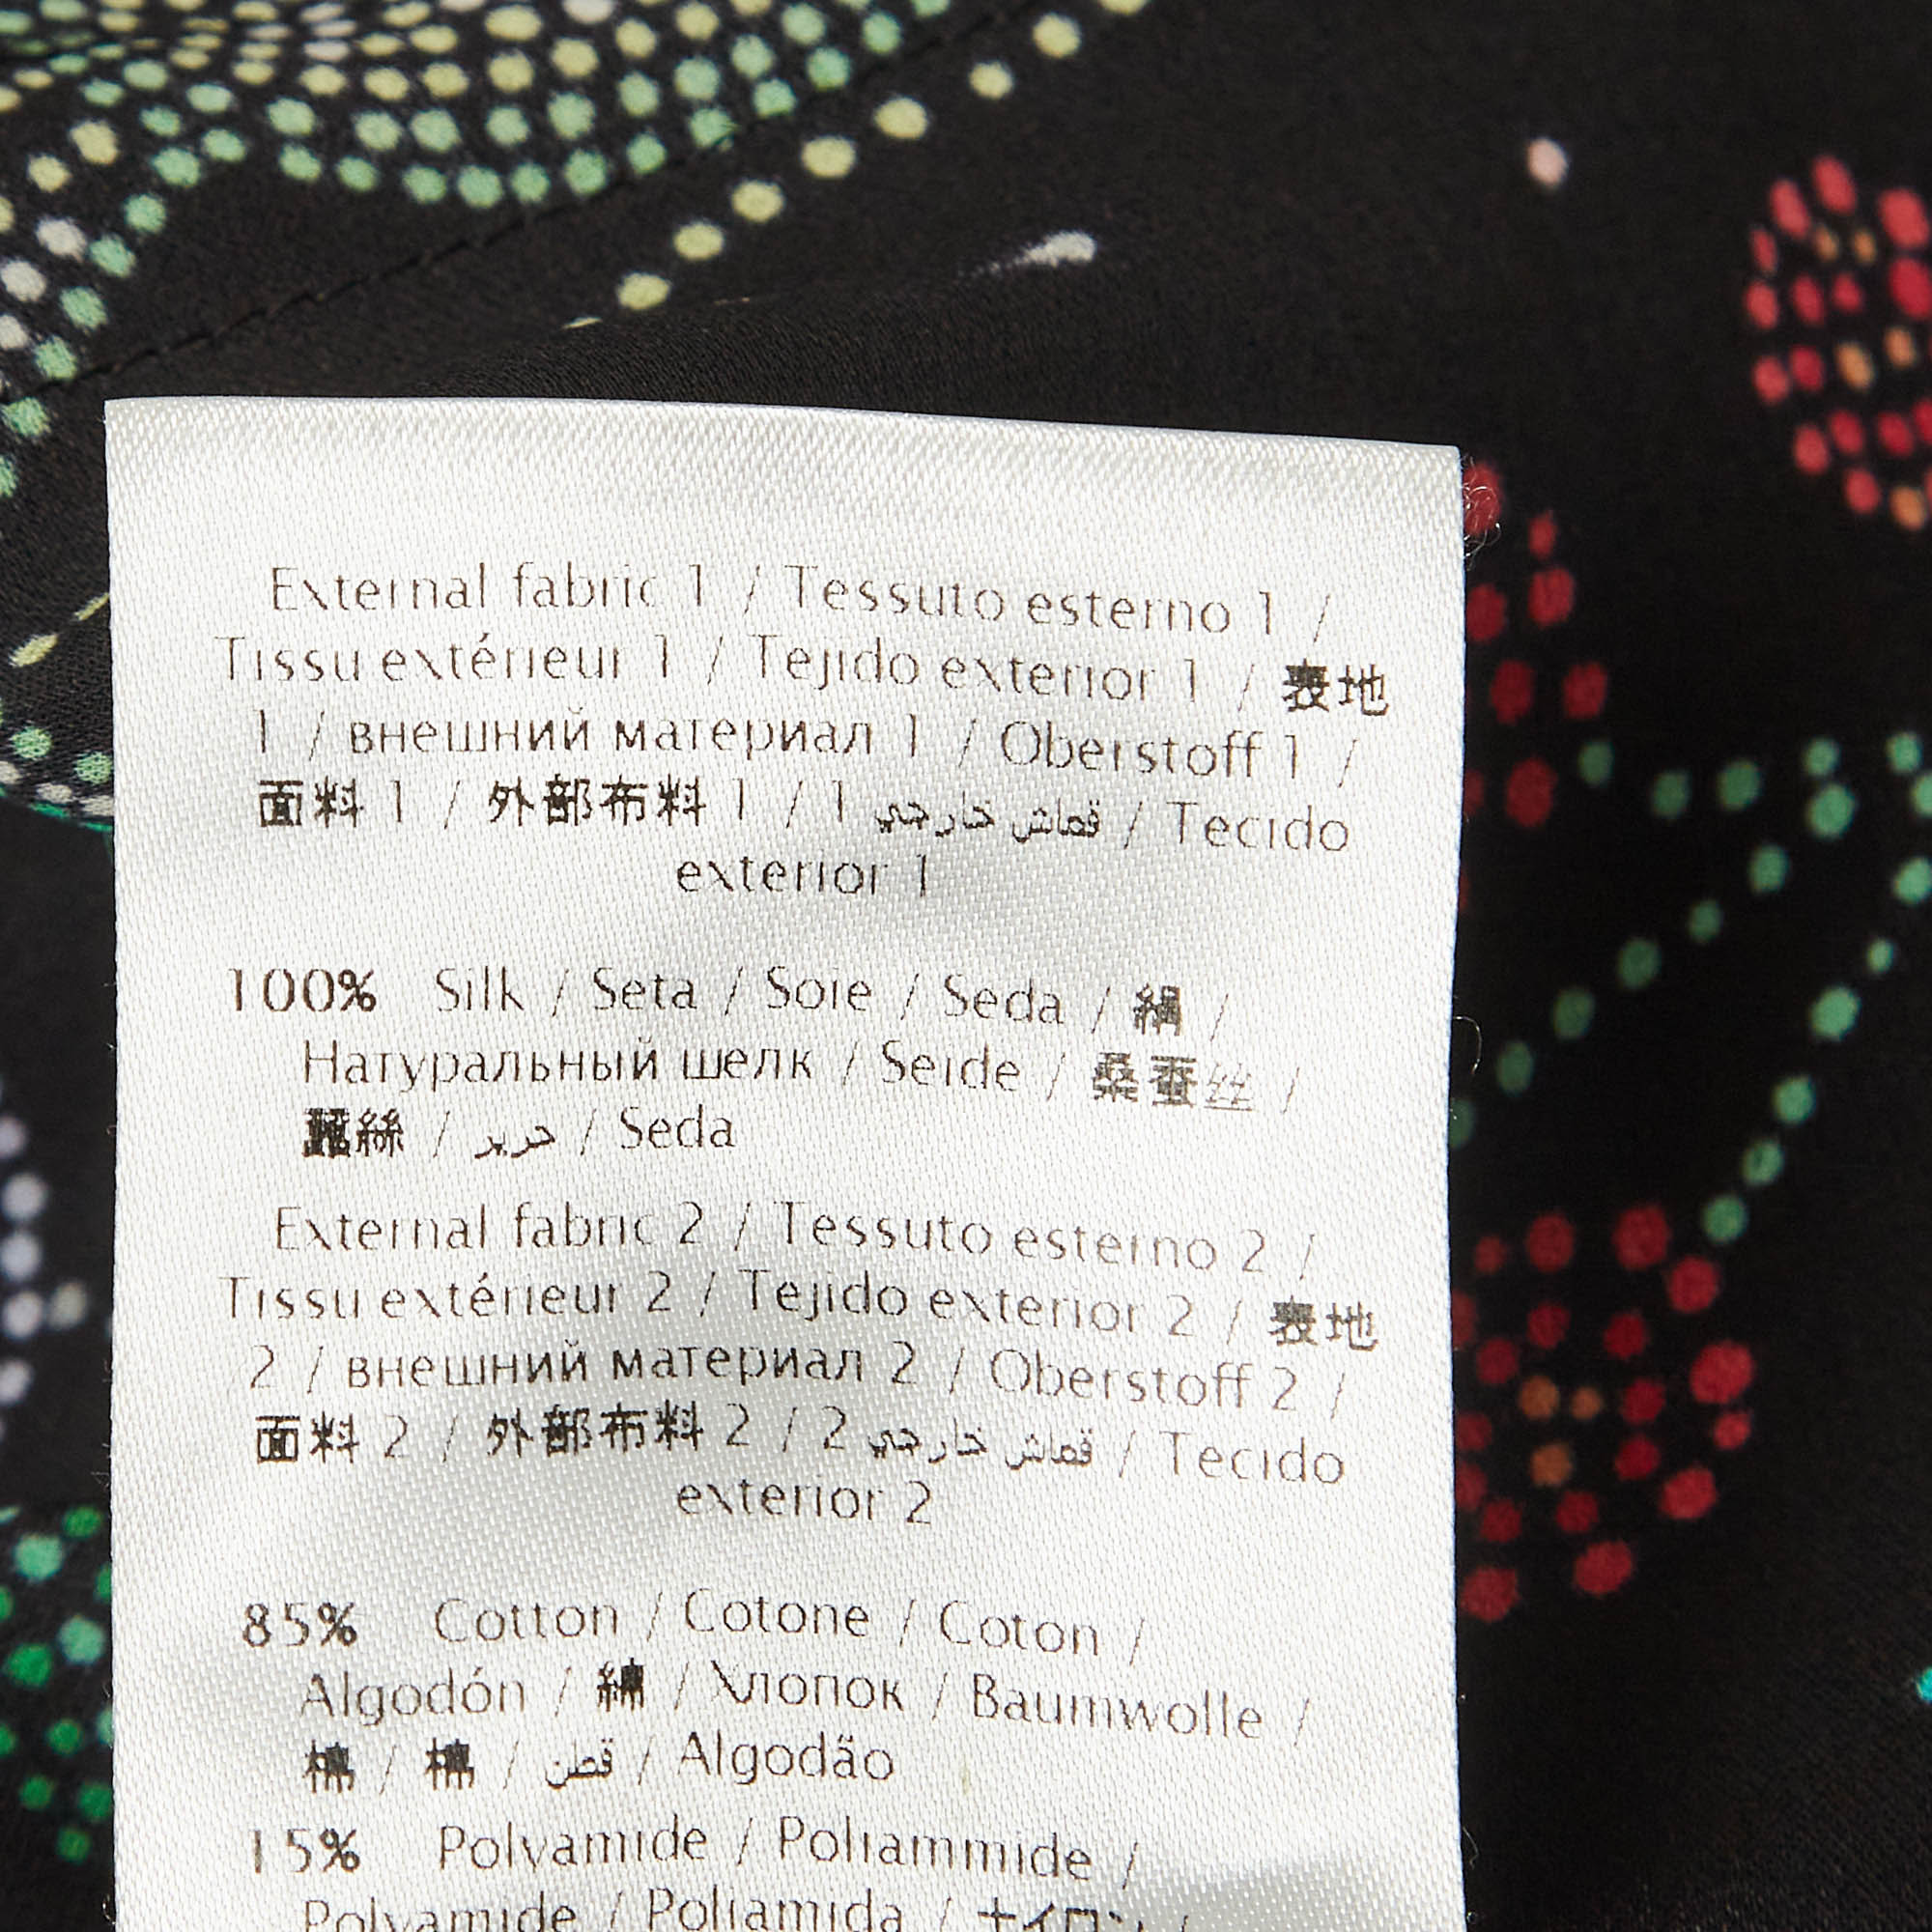 External fabric 1 / Tessuto esterno 1 /
Tissu extérieur 1 / Tejido exterior 1 / 表地
1 / внешний материал 1 / Oberstoff 1 /
面料 1 / 外部布料 1 / قماش خارجي 1 / Tecido
exterior 1
100% Silk / Seta / Soie / Seda / 絹 /
Натуральный шелк / Seide / 桑蚕丝 /
蠶絲 / حرير / Seda
External fabric 2 / Tessuto esterno 2 /
Tissu extérieur 2 / Tejido exterior 2 / 表地
2 / внешний материал 2 / Oberstoff 2 /
面料 2 / 外部布料 2 / قماش خارجي 2 / Tecido
exterior 2
85% Cotton / Cotone / Coton /
Algodón / 綿 / Хлопок / Baumwolle /
棉 / 棉 / قطن / Algodão
15% Polyamide / Poliammide /
Polyamide / Poliamida / ナイロン /